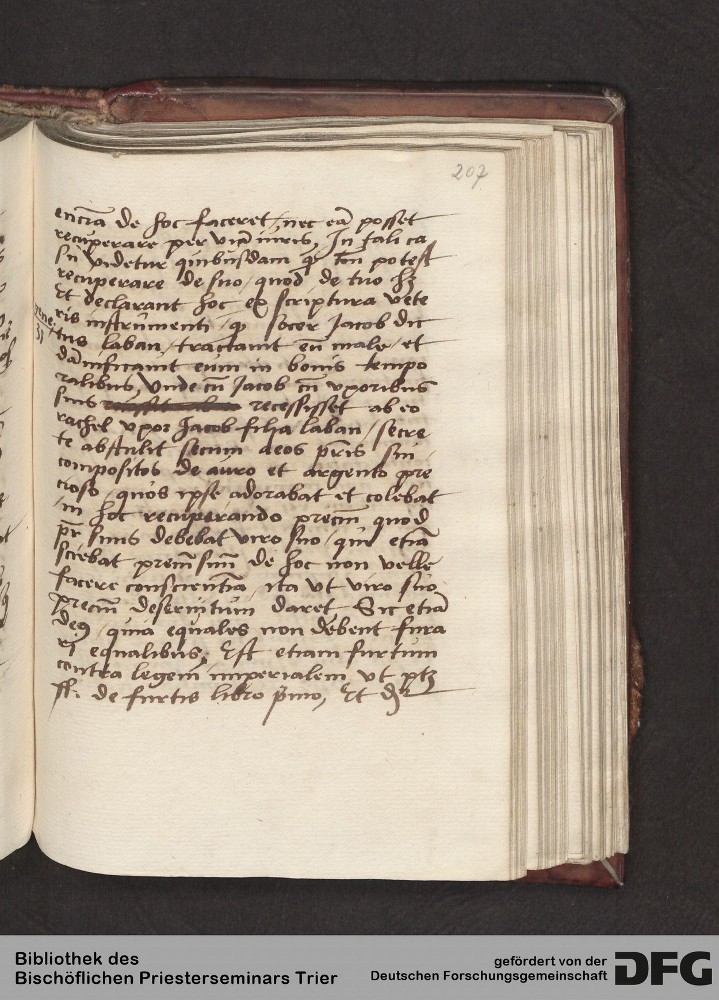 207
encia de hoc faceret, nec eā posset
recuperare per viā iuris, In tali ca
su videtur quibusdam qͥ tn̄ potest
recuperare de suo / quod de tuo hꝫ
Et declarant hoc ex scriptura vete
ris instrumenti / qͥ socer Jacob dic
gene.
31
tus laban / tractauit eū male / et
dānificauit eum in bonis tempo
ralibus, Vnde cū Jacob cū vxoribus
suis recessisset ab eo
rachel vxor Jacob filia laban / secre
te abstulit secum deos pr̄is sui
compositos de auro et argento pre
cioso / quos ipse adorabat et colebat
in hoc recuperando preciū quod
pr̄ suus debebat viro suo / quē etiā
sciebat suū de hoc non velle
facere conscientiā, ita vt viro suo
preciū deseruitum daret Sic etiā
quia equales non debent fura
ri equalibus, Est etiam furtum
contra legem imperialem vt ptꝫ
ff. de furtis libro pͥmo, Et dꝛ
Bibliothek des
Bischöflichen Priesterseminars Trier
gefördert von der
Deutschen Forschungsgemeinschaft
DFG